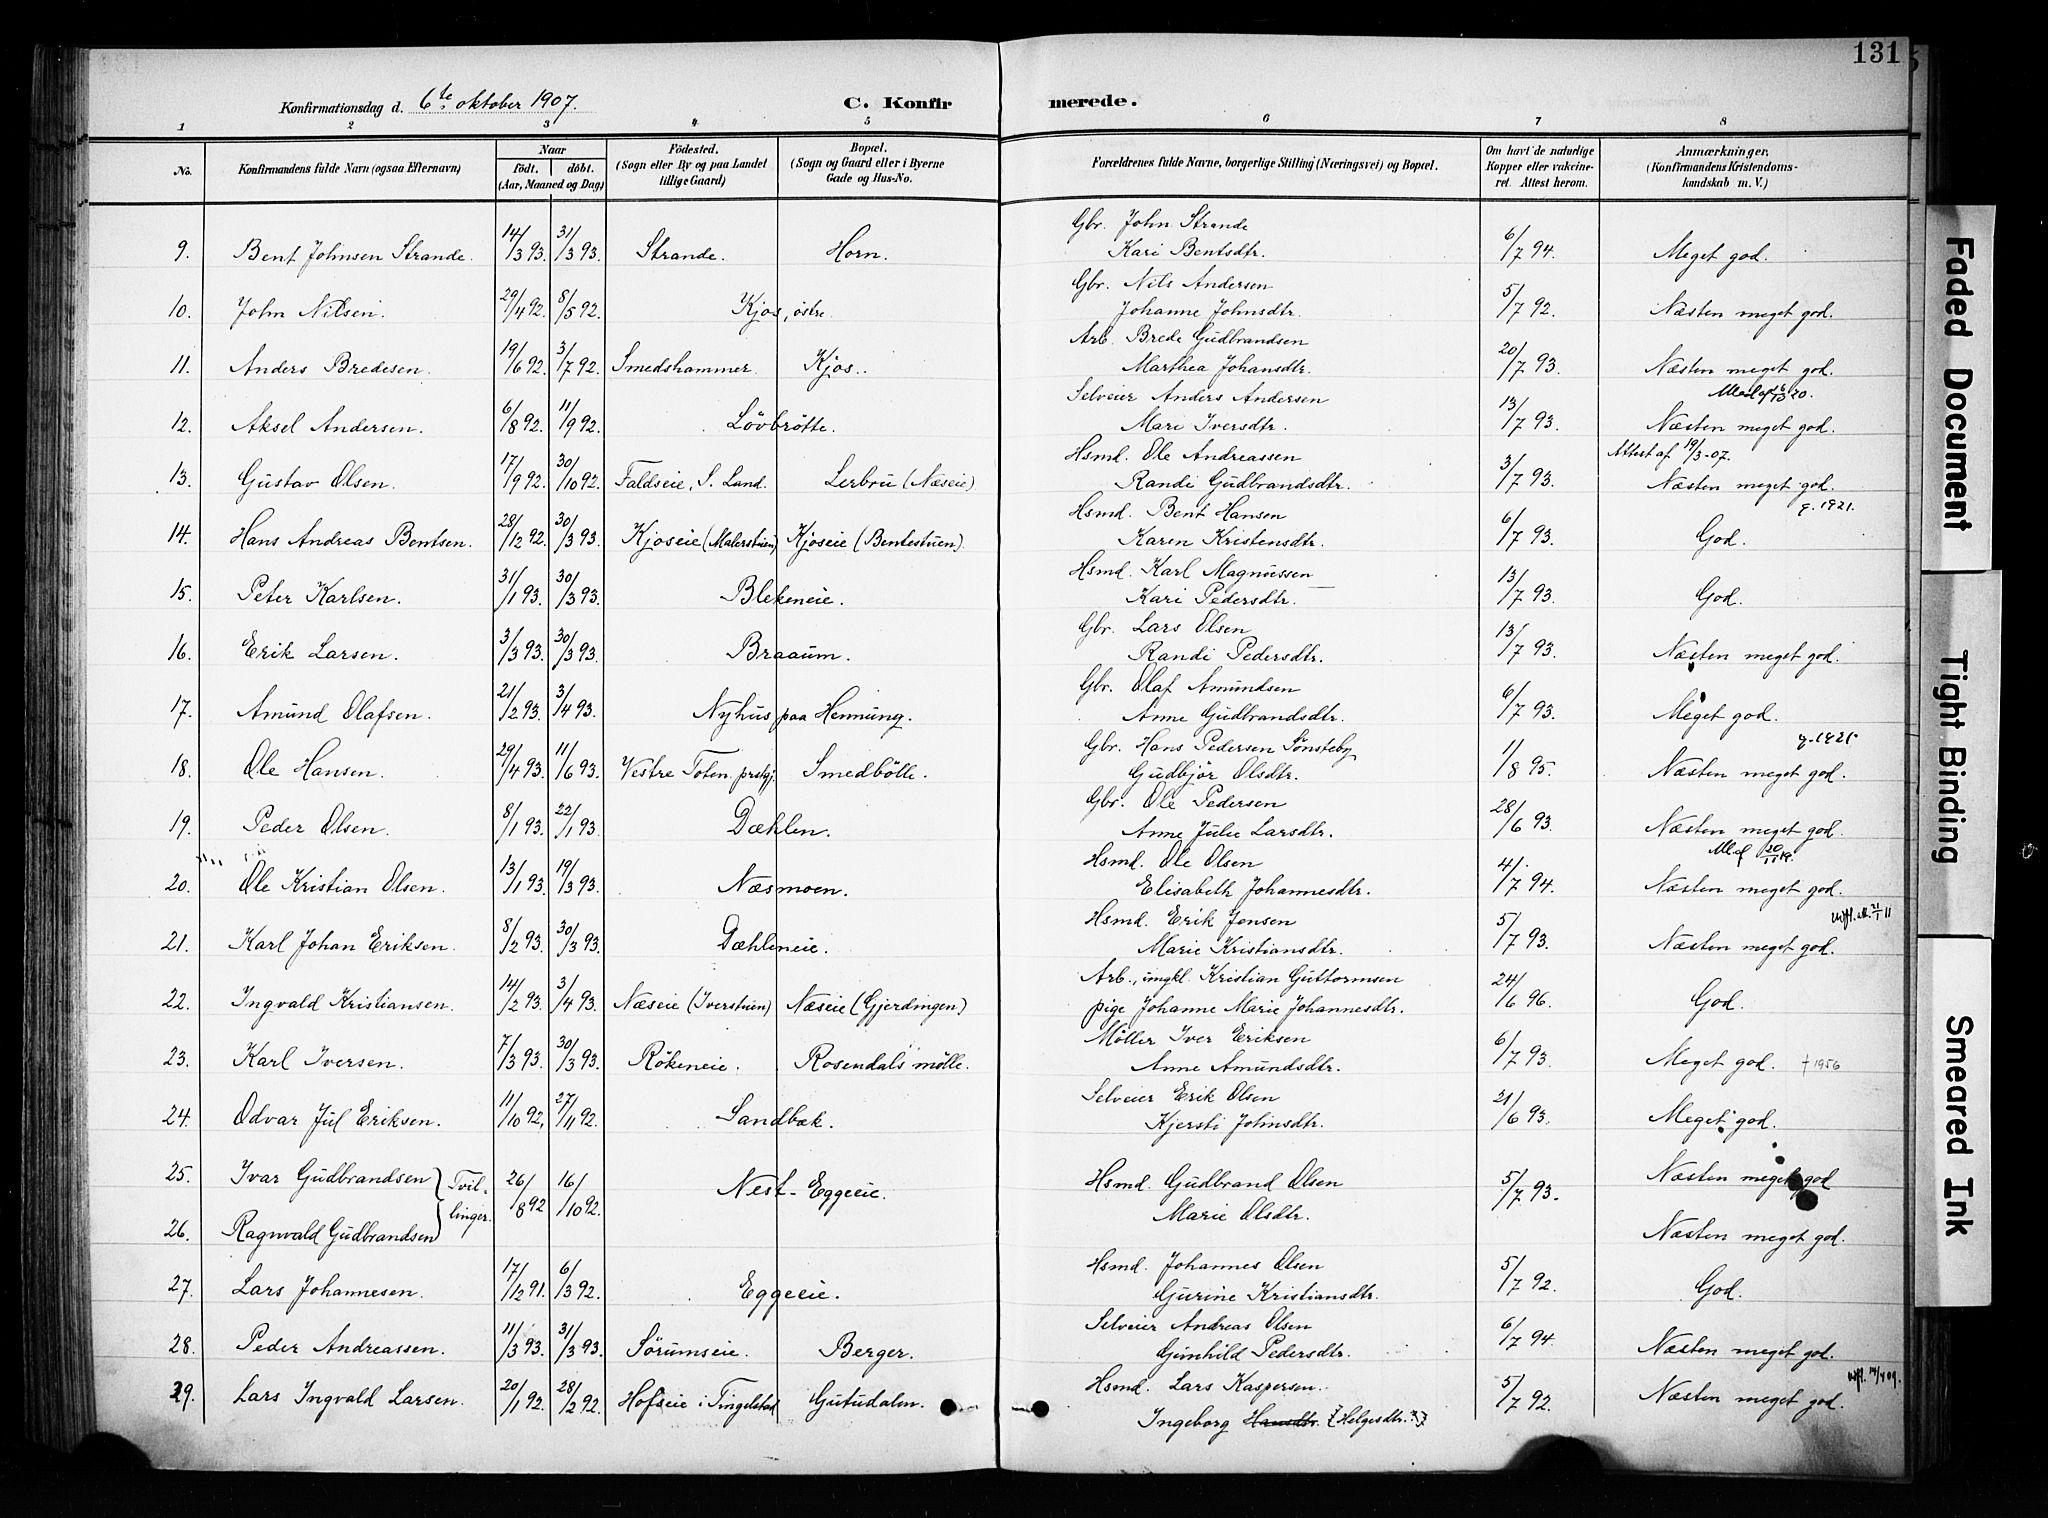 131
Konfirmationsdag d. 6te oktober 1907.
C. Konfirmerede.
1 2 3 4 5 6 7 8
No. Konfirmandens fulde Navn (ogsaa Efternavn) Naar födt. döbt. (Aar, Maaned og Dag) Födested. (Sogn eller By og paa Landet tillige Gaard) Bopæl. (Sogn og Gaard eller i Byerne Gade og Hus-No. Forældrenes fulde Navne, borgerlige Stilling (Næringsvei) og Bopæl. Om havt de naturlige Kopper eller vakcineret. Attest herom. Anmærkninger. (Konfirmandens Kristendomskundskab m. V.)
9. Bent Johnsen Strande. 14/3 93. 31/3 93. Strande. Horn. Gbr. John Strande
Kari Bentsdtr. 6/7 94. Meget god.
10. John Nilsen. 29/4 92. 8/5 92. Kjos, östre. Gbr. Nils Andersen
Johanne Johnsdtr. 5/7 92. Næsten meget god.
11. Anders Bredesen. 19/6 92. 3/7 92. Smedshammer. Kjos. Arb. Brede Gudbrandsen
Marthea Johansdtr. 20/7 93. Næsten meget god.
12. Aksel Andersen. 6/8 92. 11/9 92. Lövbrötte. Selveier Anders Andersen
Mari Iversdtr. 13/7 93. Næsten meget god.
13. Gustav Olsen. 17/9 92. 30/10 92. Faldseie, S. Land. Lerbru (Næseie) Hsmd. Ole Andreassen Attest af 19/3-07.
Randi Gudbrandsdtr. 3/7 93. Næsten meget god.
g. 1921.
14. Hans Andreas Bentsen. 28/12 92. 30/3 93. Kjoseie (Malerstuen) Kjoseie (Bentestuen). Hsmd. Bent Hansen
Karen Kristensdtr. 6/7 93. God.
15. Peter Karlsen. 31/1 93. 30/3 93. Blekeneie. Hsmd. Karl Magnussen
Kari Pedersdtr. 13/7 93. God.
16. Erik Larsen. 3/3 93. 30/3 93. Braaum. Gbr. Lars Olsen
Randi Pedersdtr. 13/7 93. Næsten meget god.
17. Amund Olafsen. 21/2 93. 3/4 93. Nyhus paa Hennung. Gbr. Olaf Amundsen
Anne Gudbrandsdtr. 6/7 93. Meget god.
18. Ole Hansen. 29/4 93. 11/6 93. Vestre Toten prstgj. Smedbölle. Gbr. Hans Pedersen Sönsteby
Gudbjör Olsdtr. 1/8 95. Næsten meget god.
19. Peder Olsen. 8/1 93. 22/1 93. Dæhlen. Gbr. Ole Pedersen
Anne Julie Larsdtr. 28/6 93. Næsten meget god.
20. Ole Kristian Olsen. 13/1 93. 19/3 93. Næsmoen. Hsmd. Ole Olsen
Elisabeth Johannesdtr. 4/7 94. Næsten meget god.
21. Karl Johan Eriksen. 8/2 93. 30/3 93. Dæhleneie. Hsmd. Erik Jensen
Marie Kristiansdtr. 5/7 93. Næsten meget god.
22. Ingvald Kristiansen. 14/2 93. 3/4 93. Næseie (Iverstuen) Næseie (Gjerdingen) Arb., ungkl. Kristian Guttormsen
pige Johanne Marie Johannesdtr. 24/6 96. God.
23. Karl Iversen. 7/3 93. 30/3 93. Rökeneie. Rosendals mölle. Möller Iver Eriksen
Anne Amundsdtr. 6/7 93. Meget god. † 1956
24. Odvar Jul Eriksen. 11/10 92. 27/11 92. Sandbæk. Selveier Erik Olsen
Kjersti Johnsdtr. 21/6 93. Meget god.
25. Ivar Gudbrandsen Tvillinger. 26/8 92 16/10 92. Nest-Eggeeie. Hsmd. Gudbrand Olsen
Marie Olsdtr. 5/7 93. Næsten meget god
26. Ragnvald Gudbrandsen Næsten meget god.
27. Lars Johannesen. 17/12 91. 6/3 92. Eggeeie. Hsmd. Johannes Olsen
Gurine Kristiansdtr. 5/7 92. God.
28. Peder Andreassen. 11/3 93. 31/3 93. Sörumseie. Berger. Selveier Andreas Olsen
Gunhild Pedersdtr. 6/7 94. Næsten meget god.
29. Lars Ingvald Larsen. 20/1 92. 28/2 92. Hofseie i Tingelstad Gutudalen. Hsmd. Lars Kaspersen.
Ingeborg Hansdtr. (Helgesdtr.) 5/7 92. Næsten meget god.
Faded Document
Tight Binding
Smeared Ink